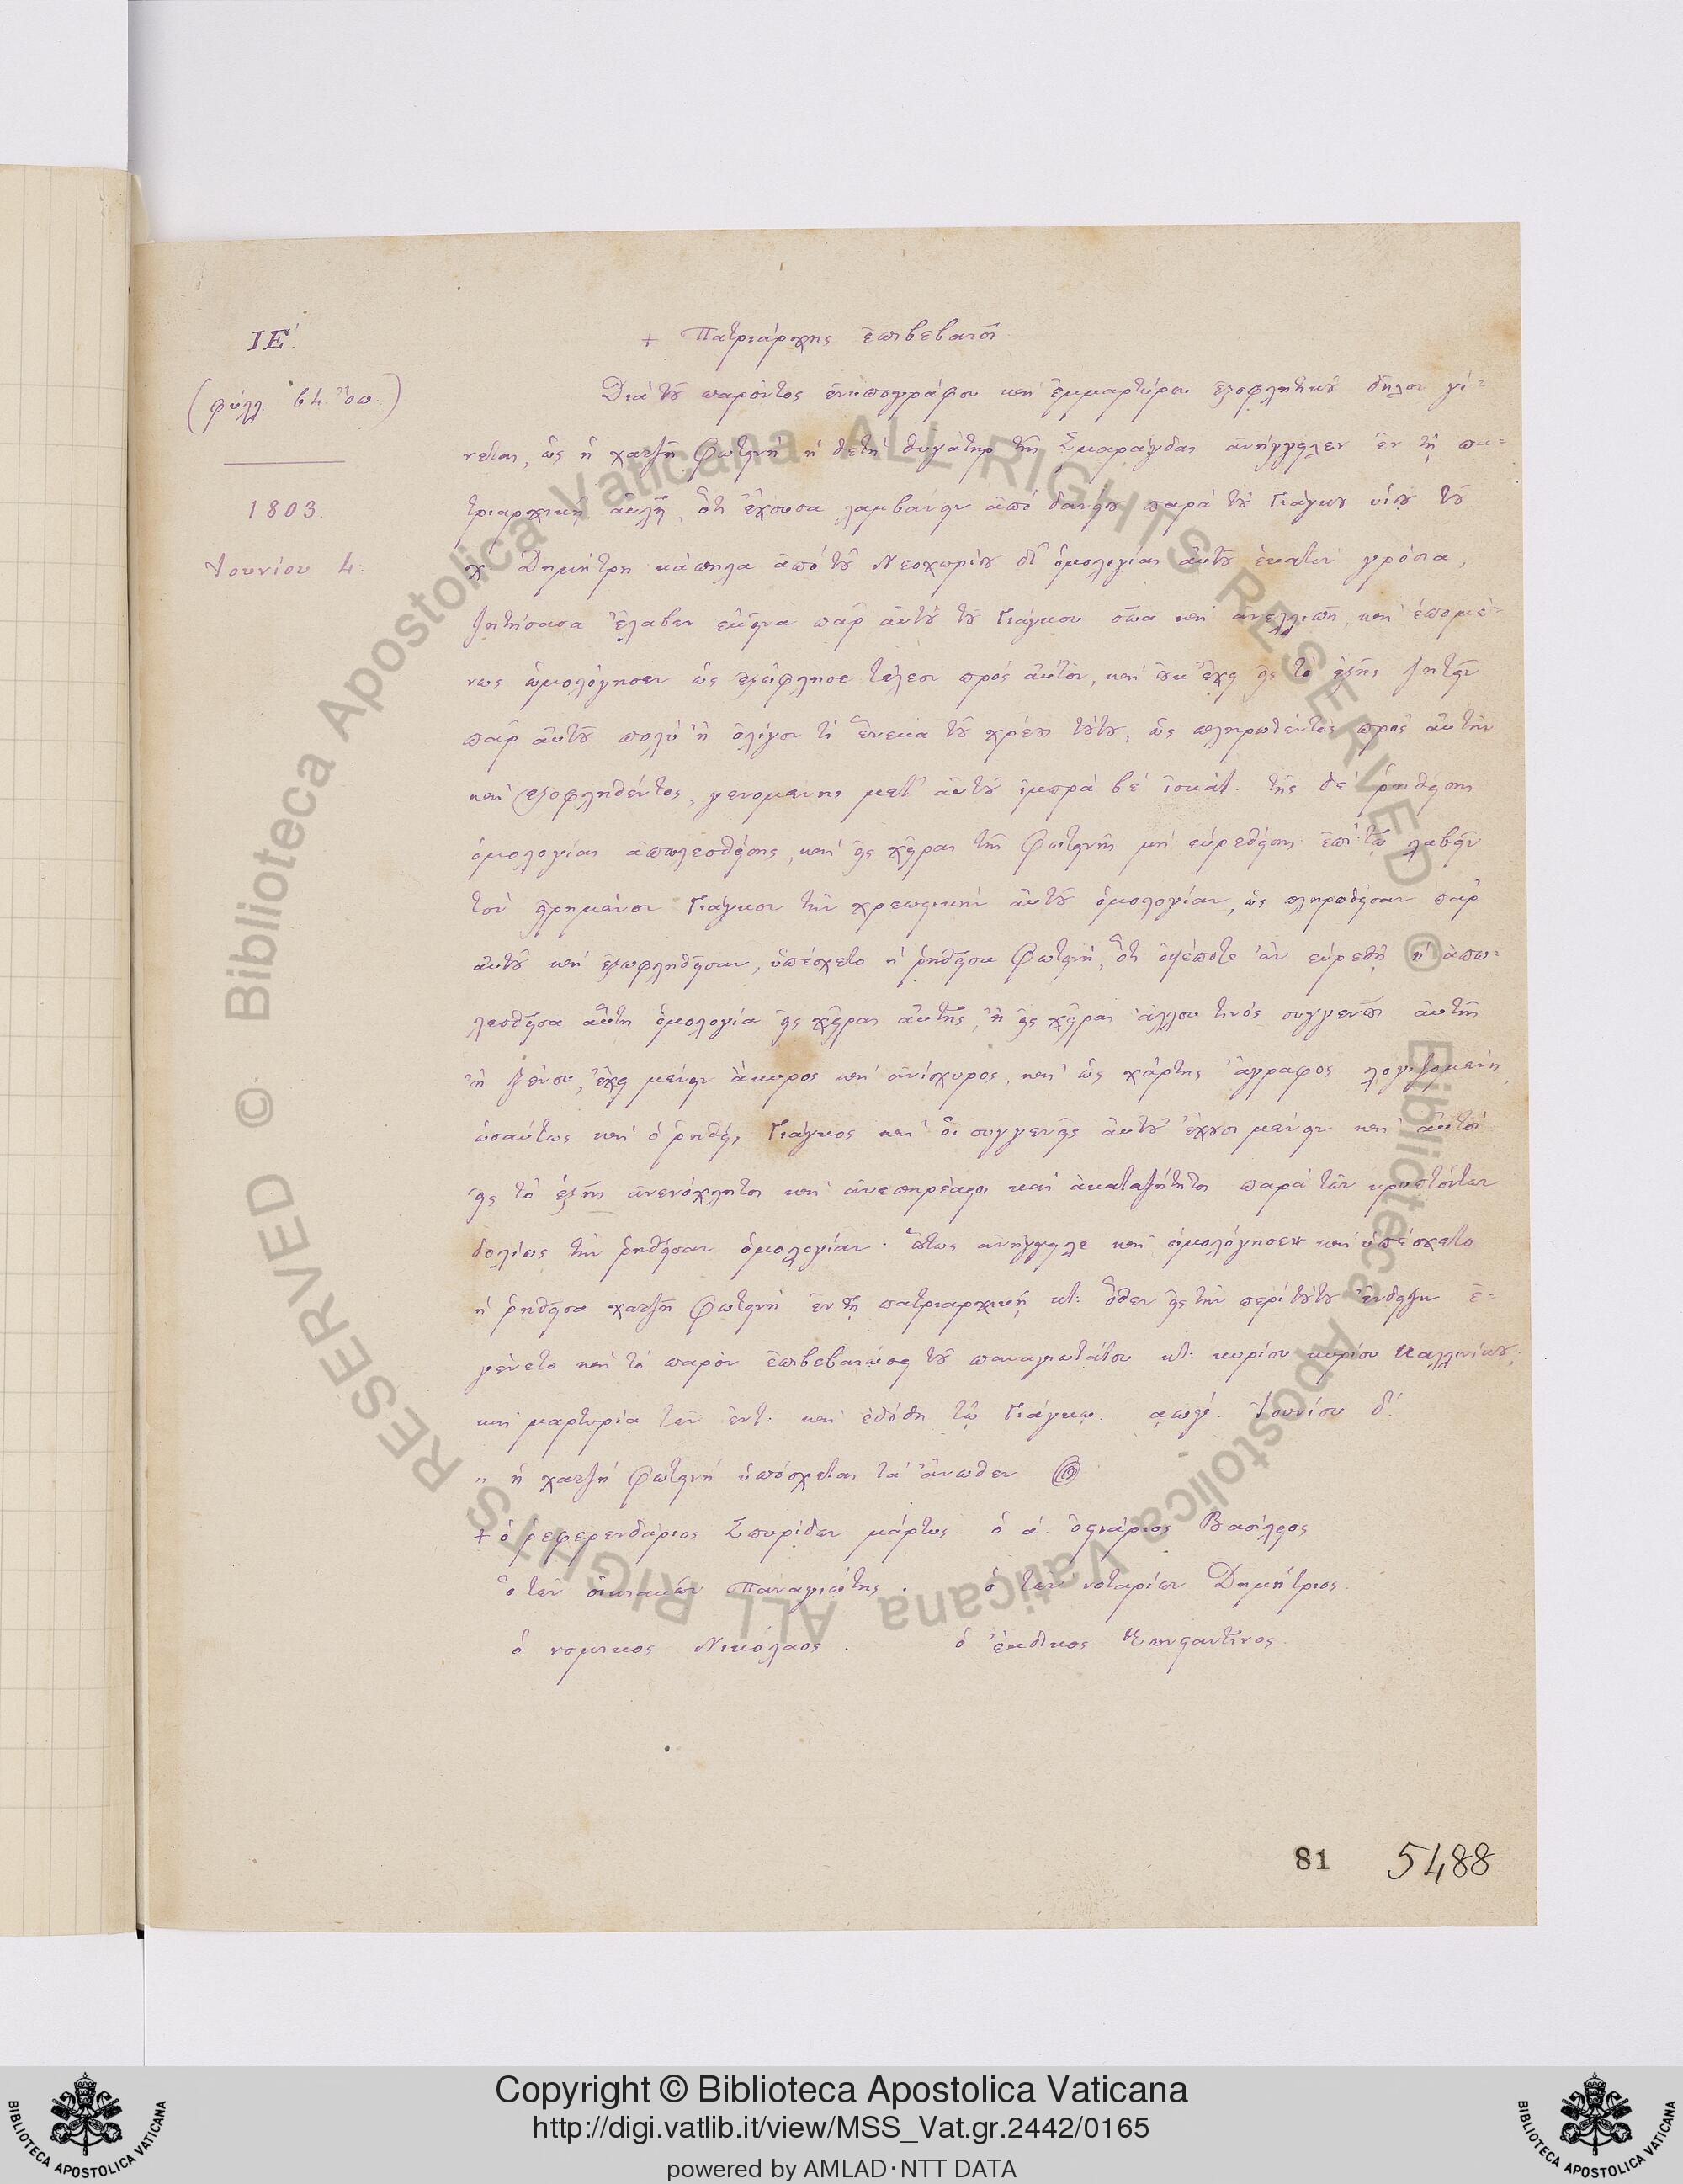 ΙΕ΄.
(φύλλ. 64. ὄπ.)
1803.
Ἰουνίου 4.
+ Πατριάρχης ἐπιβεβαιοῖ
Διὰ τοῦ παρόντος ἐνυπογράφου καὶ ἐμμαρτύρου ἐξοφλητικοῦ δῆλον γί-
νεται, ὡς ἡ χατζῆ Φωτεινὴ ἡ θετὴ θυγάτηρ τῆς Σμαράγδας ἀνήγγειλεν ἐν τῇ πα-
τριαρχικῇ αὐλῇ, ὅτι ἔχουσα λαμβάνειν ἀπὸ δανείου παρὰ τοῦ Γιάγκου υἱοῦ τοῦ
χ: Δημήτρη κάπηλα ἀπὸ τοῦ Νεοχωρίου δι᾽ ὁμολογίας αὐτοῦ ἑκατὸν γρόσια,
ζητήσασα ἔλαβεν ἐκεῖνα παρ᾽ αὐτοῦ τοῦ Γιάγκου σῶα καὶ ἀνελλιπῆ, καὶ ἑπομέ-
νως ὡμολόγησεν ὡς ἐξώφλησε τέλεον πρὸς αὐτὸν, καὶ οὐκ ἔχει εἰς τὸ ἑξῆς ζητεῖν
παρ᾽ αὐτοῦ πολὺ ἢ ὀλίγον τὶ ἕνεκα τοῦ χρέους τούτου, ὡς πληρωθέντος πρὸς αὐτὴν
καὶ ἐξοφληθέντος, γενομένης μετ᾽ αὐτοῦ ἰμπρὰ βὲ ἰσκάτ. τῆς δὲ ῥηθείσης
ὁμολογίας ἀπωλεσθείσης, καὶ εἰς χεῖρας τῆς Φωτεινῆς μὴ εὑρεθείσης ἐπὶ τῷ λαβεῖν
τὸν εἰρημένον Γιάγκον τὴν χρεωστικὴν αὐτοῦ ὁμολογίαν, ὡς πληρωθεῖσαν παρ᾽
αὐτοῦ καὶ ἐξωφληθεῖσαν, ὑπέσχετο ἡ ῥηθεῖσα Φωτεινὴ, ὅτι ὁψέποτε ἂν εὑρεθῇ ἡ ἀπω-
λεσθεῖσα αὕτη ὁμολογία εἰς χεῖρας αὐτῆς, ἢ εἰς χεῖρας ἄλλου τινὸς συγγενοῦς αὐτῆς
ἢ ξένου, ἔχει μένειν ἄκυρος καὶ ἀνίσχυρος, καὶ ὡς χάρτης ἄγραφος λογιζομένη,
ὡσαύτως καὶ ὁ ῥηθεὶς Γιάγκος καὶ οἱ συγγενεῖς αὐτοῦ ἔχουσι μένειν καὶ αὐτοὶ
εἰς τὸ ἑξῆς ἀνενόχλητοι καὶ ἀνεπηρέαστοι καὶ ἀκαταζήτητοι παρὰ τῶν κρυπτόντων
δολίως τὴν ῥηθεῖσαν ὁμολογίαν. οὕτως ἀνήγγειλε καὶ ὡμολόγησεν καὶ ὑπέσχετο
ἡ ῥηθεῖσα χατζῆ Φωτεινὴ ἐν τῇ πατριαρχικῇ κτ: ὅθεν εἰς τὴν περὶ τούτου ἔνδειξιν ἐ-
γένετο καὶ τὸ παρὸν ἐπιβεβαιώσει τοῦ παναγιωτάτου κτ: κυρίου κυρίου Καλλινίκου,
καὶ μαρτυρίᾳ τῶν ἐντ: καὶ ἐδόθη τῷ Γιάγκῳ. αωγ΄. Ἰουνίου δ΄.
" ἡ χατζῆ Φωτεινὴ ὑπόσχεται τὰ ἄνωθεν.
+ ὁ ῥεφερενδάριος Σπυρίδων μάρτυς. ὁ ά. ὀστιάριος Βασίλειος
ὁ τῶν οἰκιακῶν Παναγιώτης. ὁ τῶν νοταρίων Δημήτριος.
ὁ νομικὸς Νικόλαος. ὁ ἔκδικος Κωνσταντῖνος.
81 5488
Copyright © Biblioteca Apostolica Vaticana
http://digi.vatlib.it/view/MSS_Vat.gr.2442/0165
powered by AMLAD·NTT DATA
BIBLIOTECA APOSTOLICA VATICANA
BIBLIOTECA APOSTOLICA VATICANA
© Biblioteca Apostolica Vaticana ALL RIGHTS RESERVED
© Biblioteca Apostolica Vaticana ALL RIGHTS RESERVED